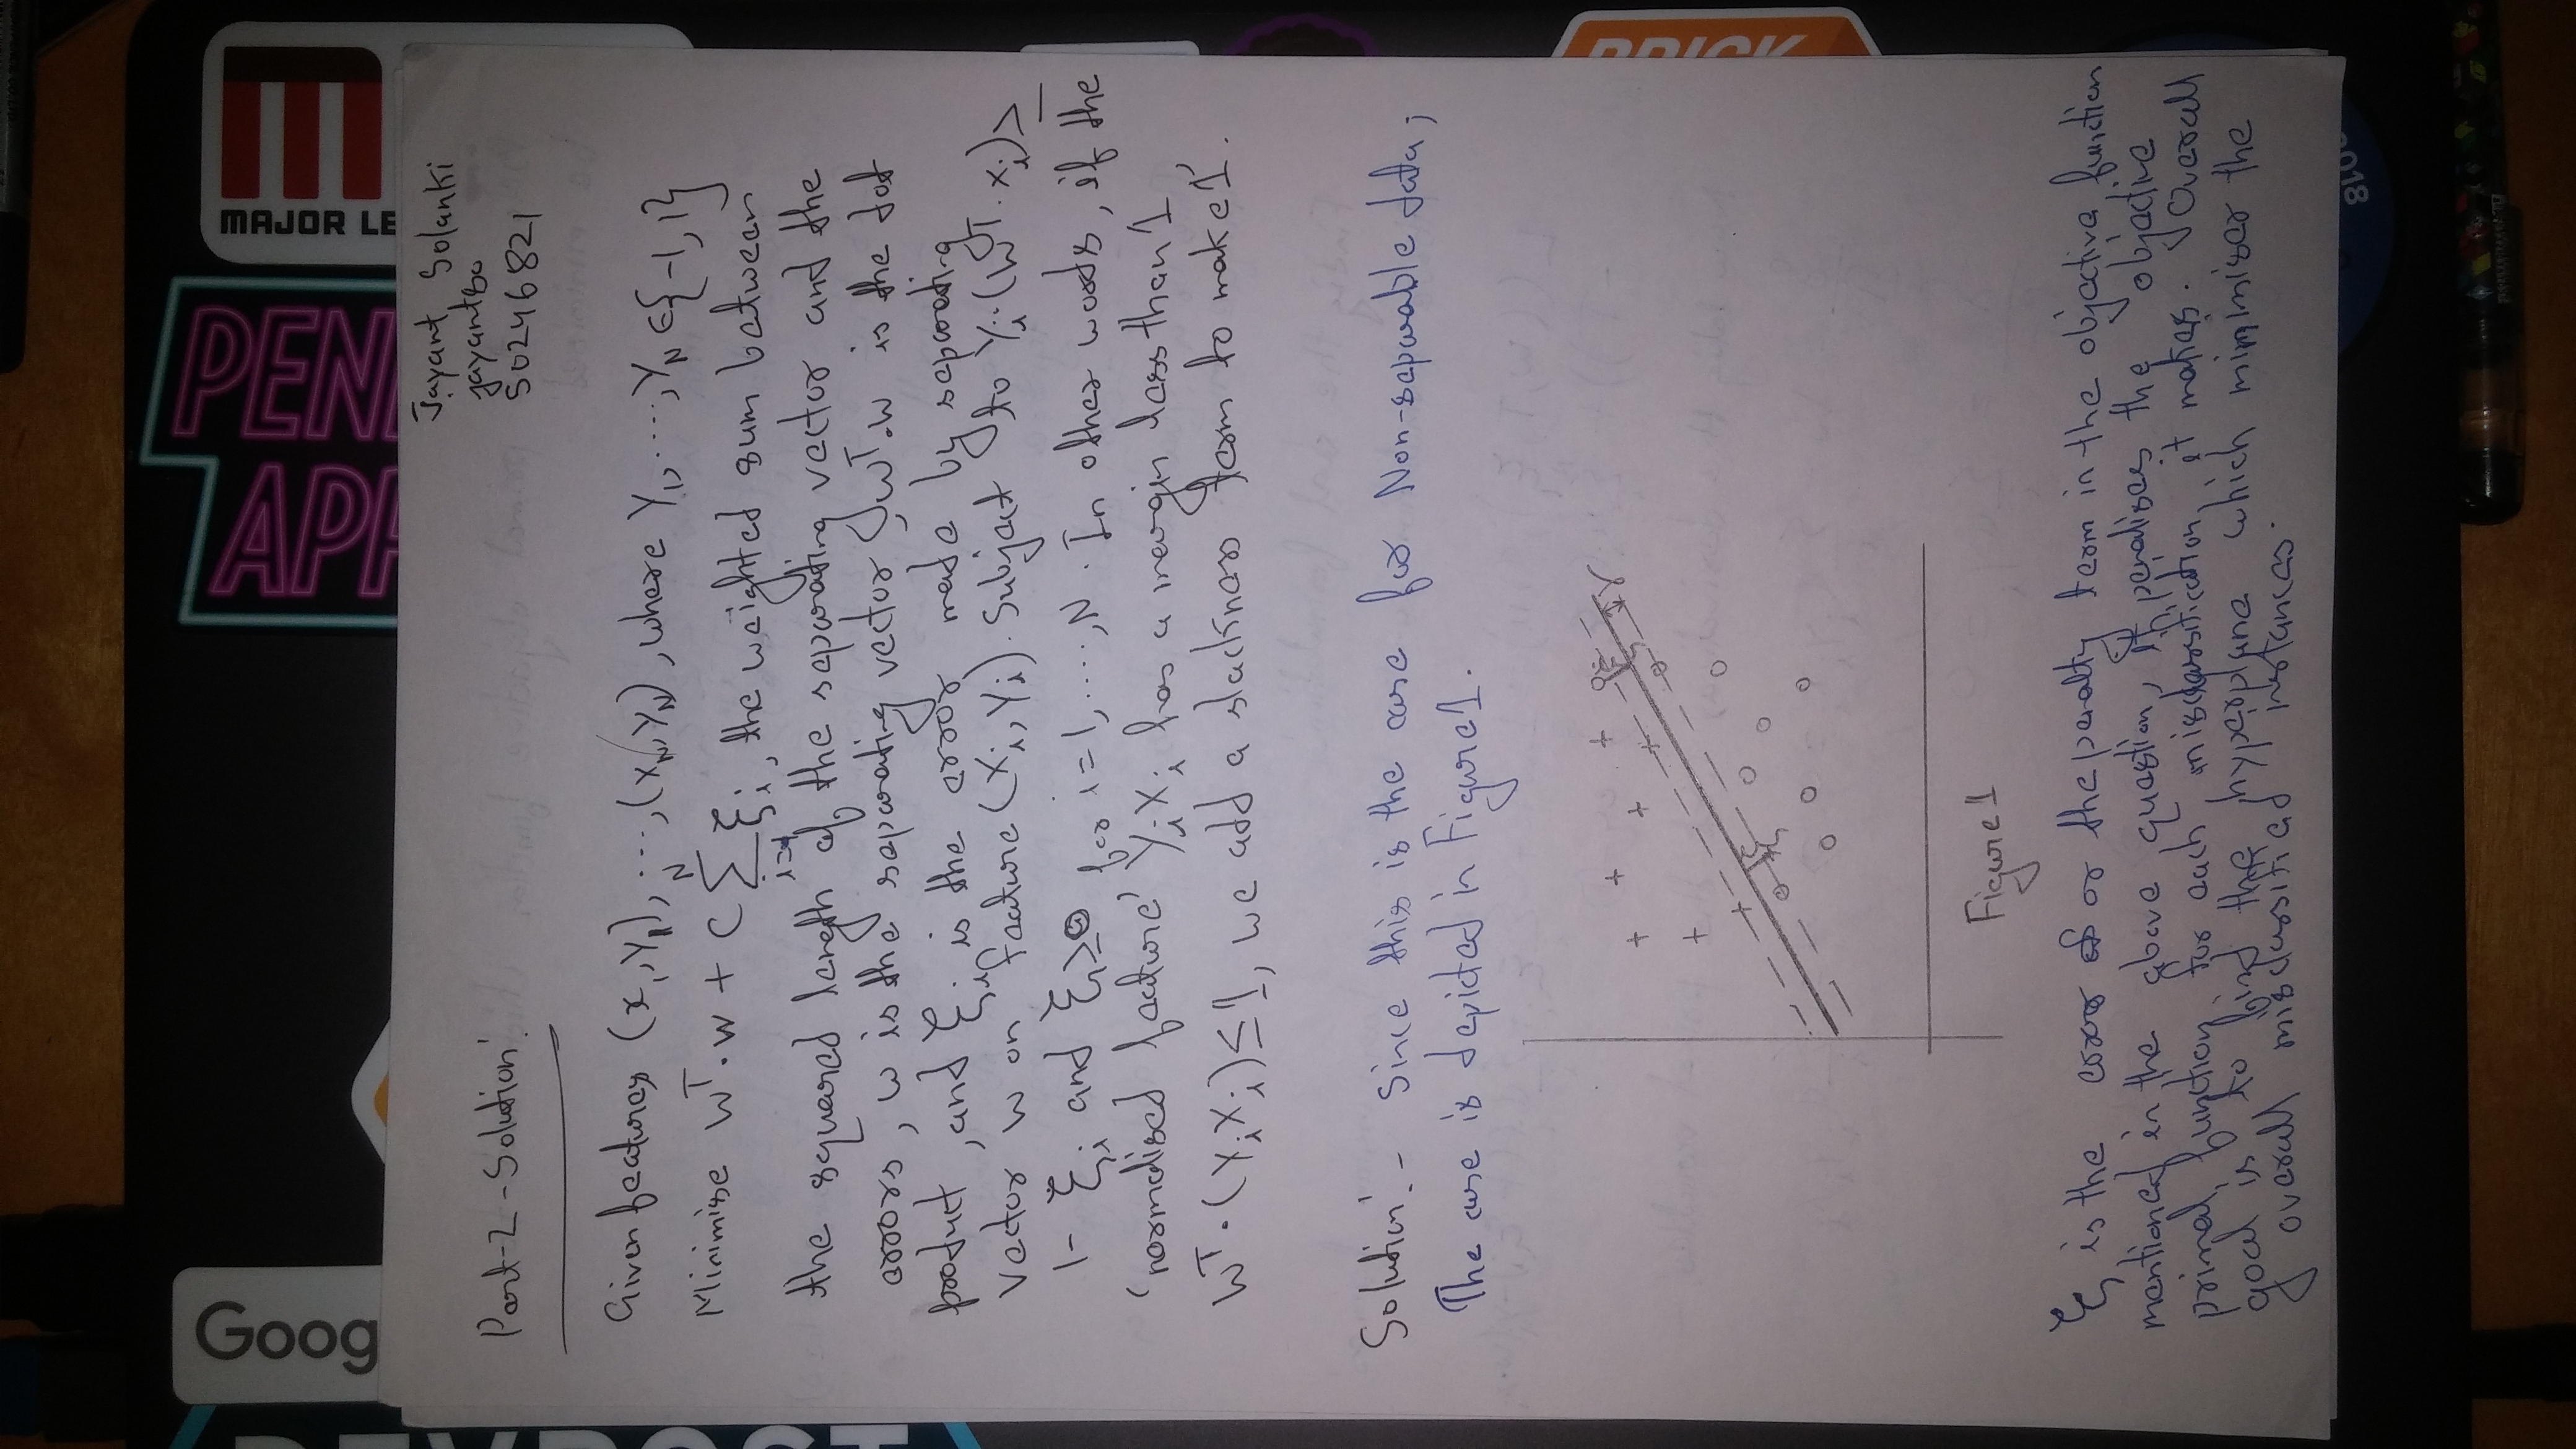 Goog
PEN
AP
MAJOR LE
Jayant Solanki
jayantso
50246821
Part-2-Solution:
Given features (x₁,Y₁), ...., (X_N,Y_N), where Y₁, ...., Y_N ∈{-1,1}
Minimise W^T.W + C ∑_{i=1}^{N} ξ_i, the weighted sum between
the squared length of the separating vector and the
errors, w is the separating vector, w^T.w is the dot
product, and ξ_i is the error made by separating
vector w on feature (X_i, Y_i). Subject to Y_i.(W^T. x_i) ≥
1- ξ_i and ξ_i ≥ 0 for i=1, ...., N. In other words, if the
'normalised feature' Y_i X_i has a margin less than 1,
W^T.(Y_i X_i) ≤ 1, we add a slackness term to make 1.
Solution:- Since this is the case for Non-separable data;
The case is depicted in Figure 1.
ξ
γ
ξ
Figure 1
ξ is the error or the penalty term in the objective function
mentioned in the above question, it penalises the objective
primal function for each misclassification it makes. Overall
goal is to find the hyperplane which minimises the
overall misclassified instances.
2018